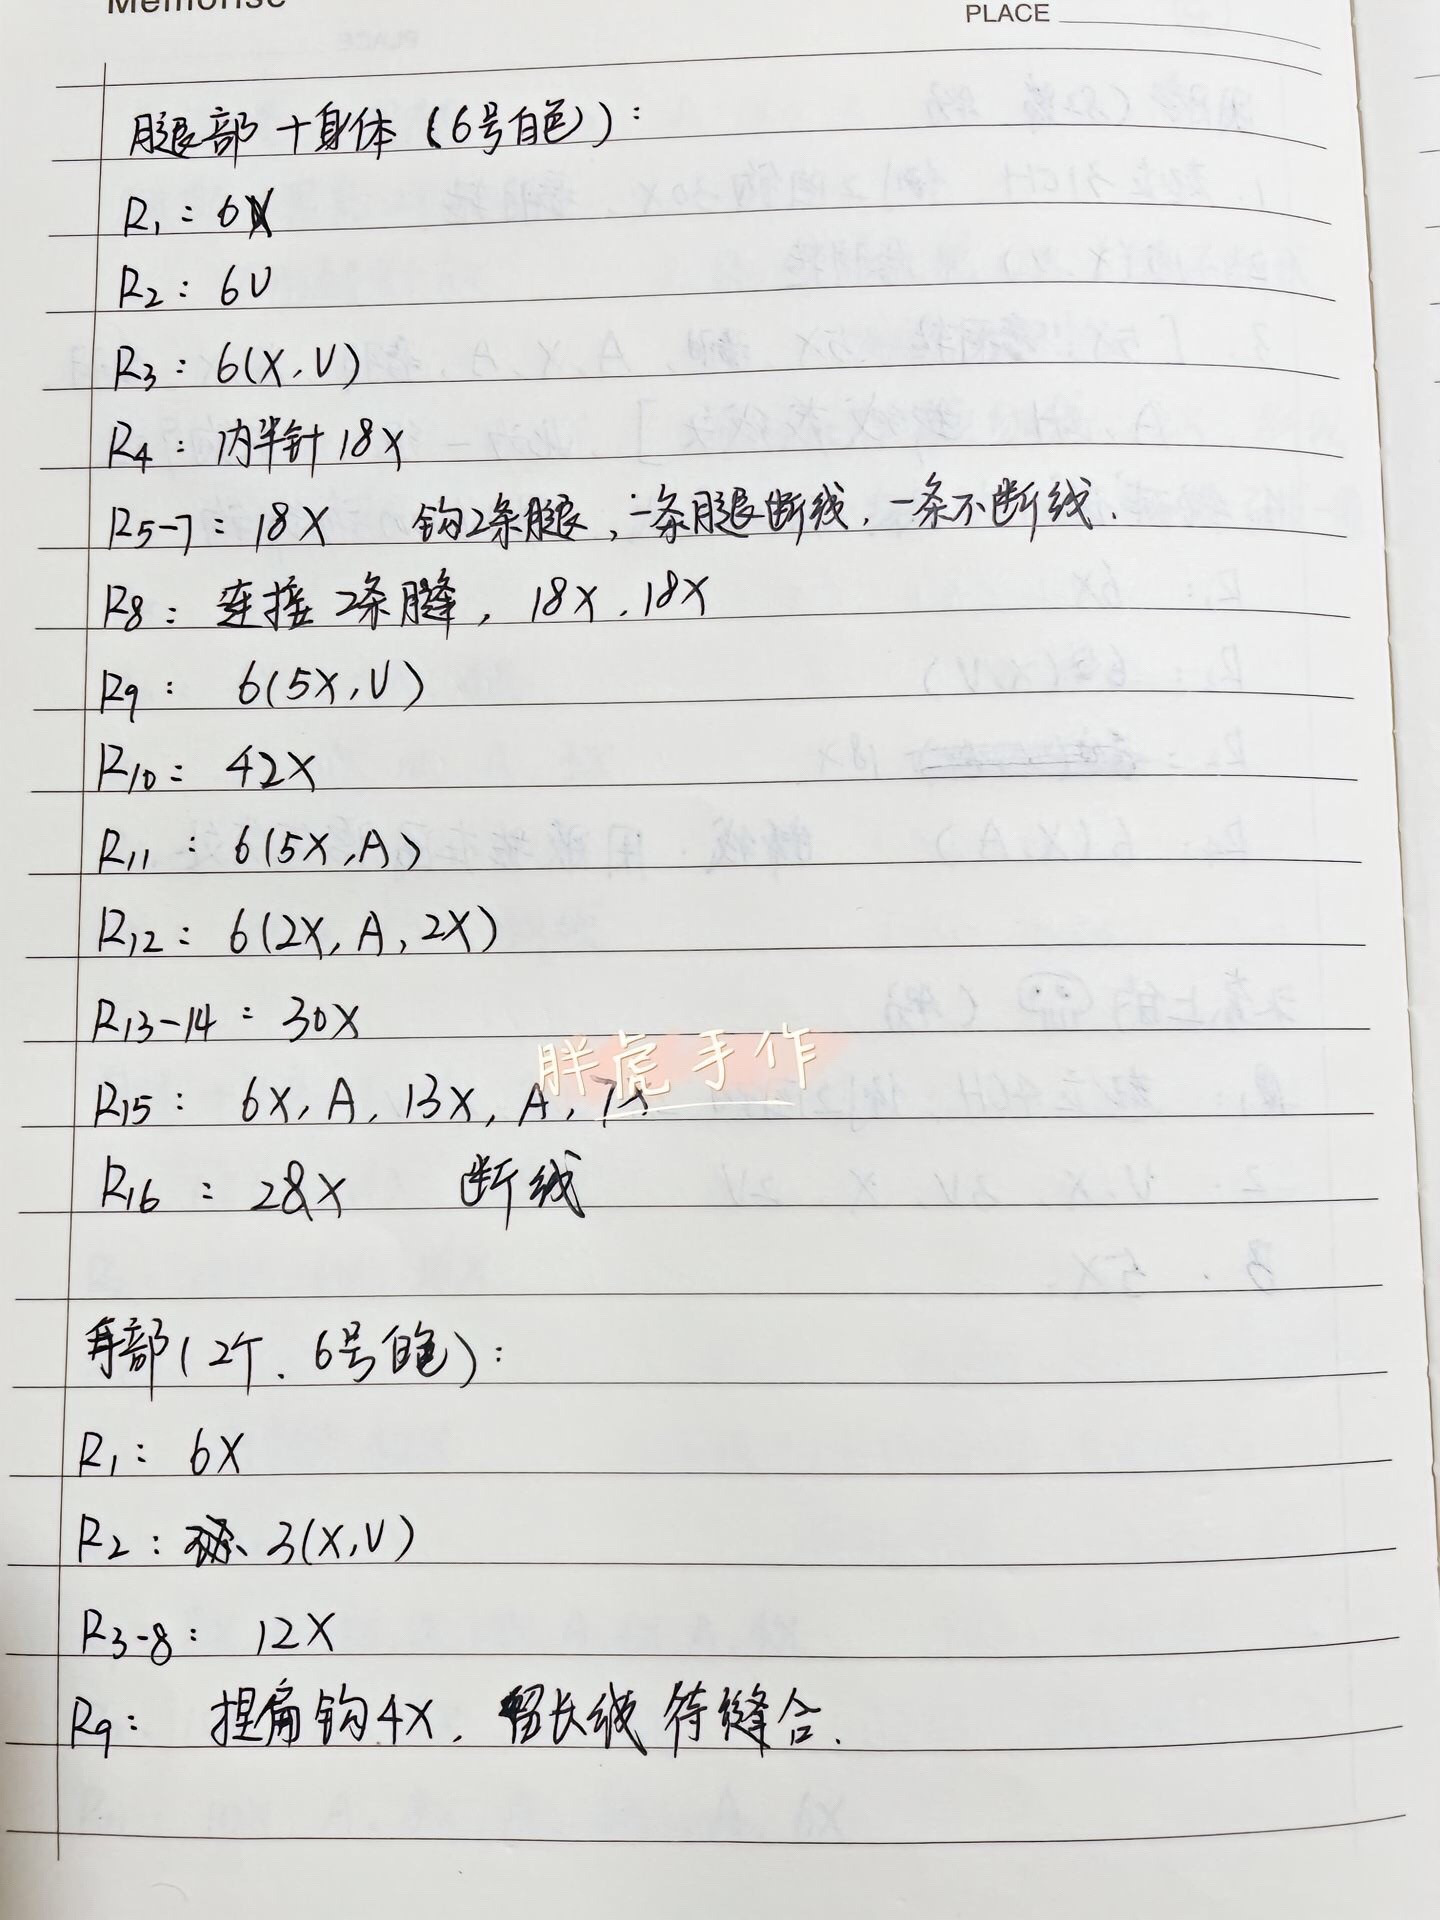 Memorise
PLACE
腿部+身体(6号白色):
R1:6X
R2:6V
R3:6(X,V)
R4:内半针18X
R5-7:18X 钩2条腿,一条腿断线,一条不断线.
R8:连接2条腿,18X,18X
R9: 6(5X,V)
R10: 42X
R11:6(5X,A)
R12:6(2X,A,2X)
R13-14:30X
胖虎手作
R15: 6X,A,13X,A,7X
R16:28X 断线
耳部(2个、6号白色):
R1: 6X
R2: 3(X,V)
R3-8: 12X
R9: 捏扁钩4X,留长线待缝合.